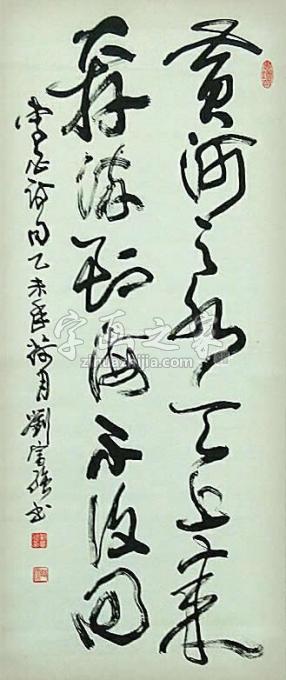 黄河之水天上来
奔流到海不复回
李白诗句乙未年荷月刘富强书
字画之家
zihuazhijia.com